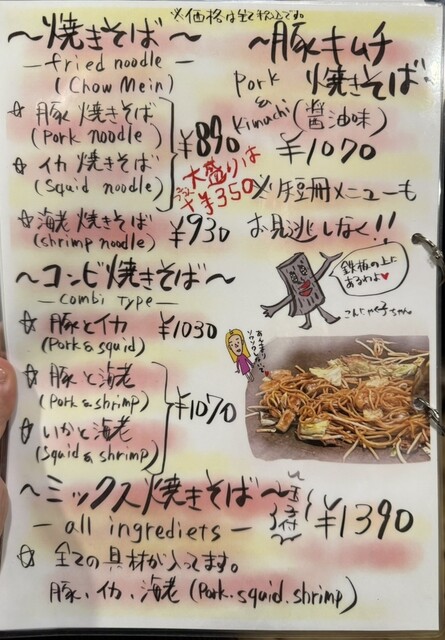 ※価格は全て税込です。
～焼きそば～
—fried noodle—
(Chow Mein)
☆豚焼きそば
(Pork noodle)
☆イカ焼きそば
(Squid noodle)
¥890
大盛りは
プラス
+¥350
☆海老焼きそば ¥930
(shrimp noodle)
～豚キムチ
焼きそば～
Pork
&
Kimuchi
(醤油味)
¥1070
※短冊メニューも
お見逃しなく!!
鉄板の上に
あるわよ♥
こんにゃく子ちゃん
～コンビ焼きそば～
—combi type—
☆豚とイカ ¥1030
(Pork & squid)
☆豚と海老
(Pork & shrimp)
☆いかと海老
(Squid & shrimp)
¥1070
～ミックス焼きそば～
玉子付
¥1390
— all ingrediets —
☆全ての具材が入ってます。
豚、イカ、海老 (Pork.squid.shrimp)